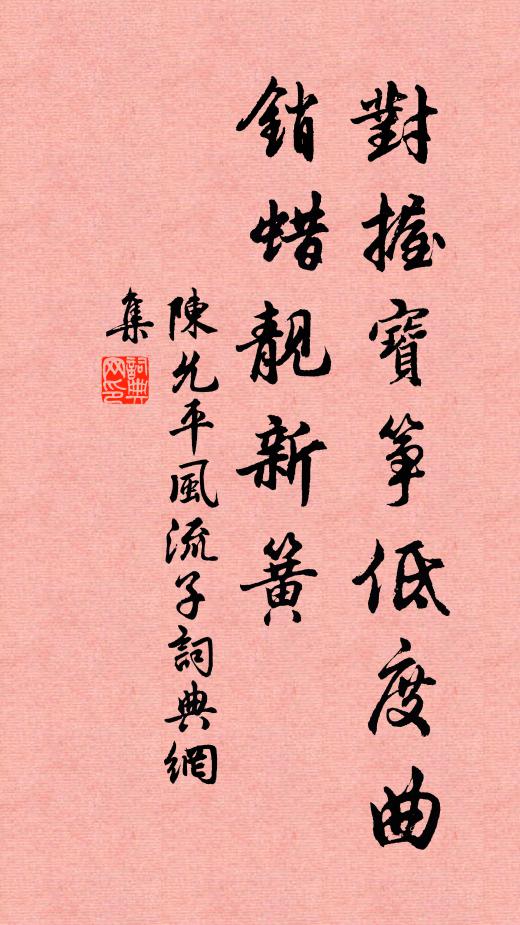 對握寶箏低度曲
銷蜡靚新簧
陳允平風流子詞典網
集
詞典
网印